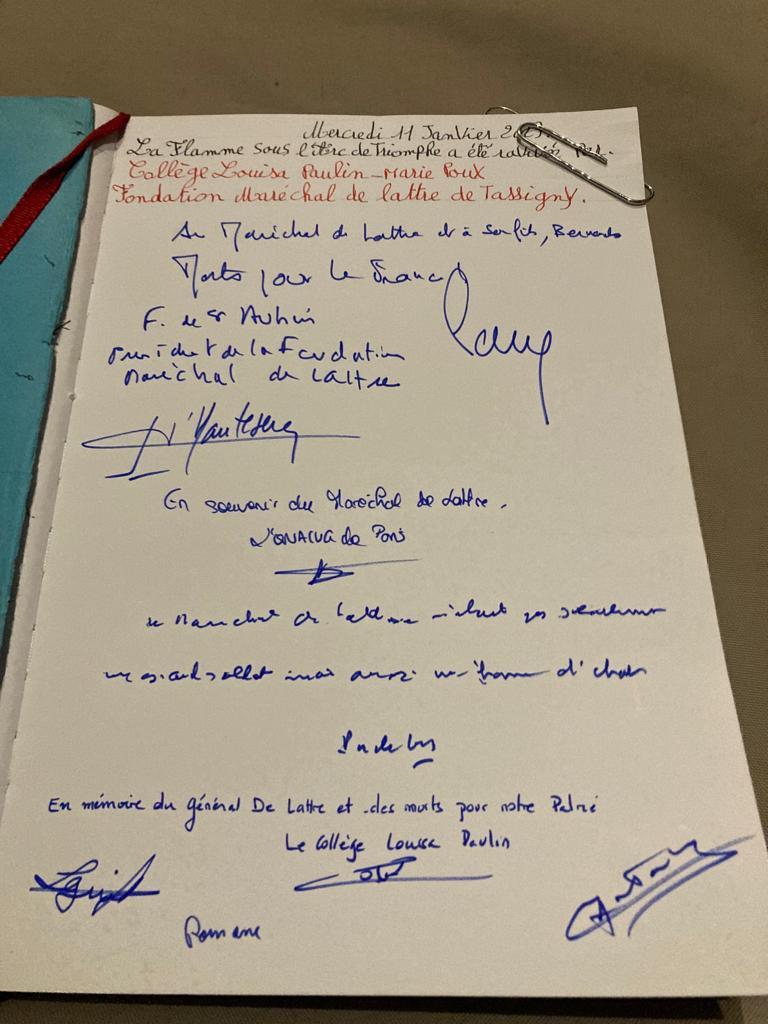 Mercredi 11 Janvier
La Flamme sous l'Arc de Triomphe a été ravivée Par.
Collège Louisa Paulin_Marie Roux
Fondation Maréchal de lattre de Tassigny.
Au Maréchal de Lattre et à son fils, Bernard
Morts pour la France
F. de St Aubin
président de la Fondation
Maréchal de Lattre
En souvenir du Maréchal de Lattre.
L'ONACVG de Paris
Le Maréchal de Lattre n'était pas seulement
un grand soldat mais aussi un homme d'
En mémoire du général De Lattre et des morts pour notre Patrie
Le Collège Louisa Paulin
Romane